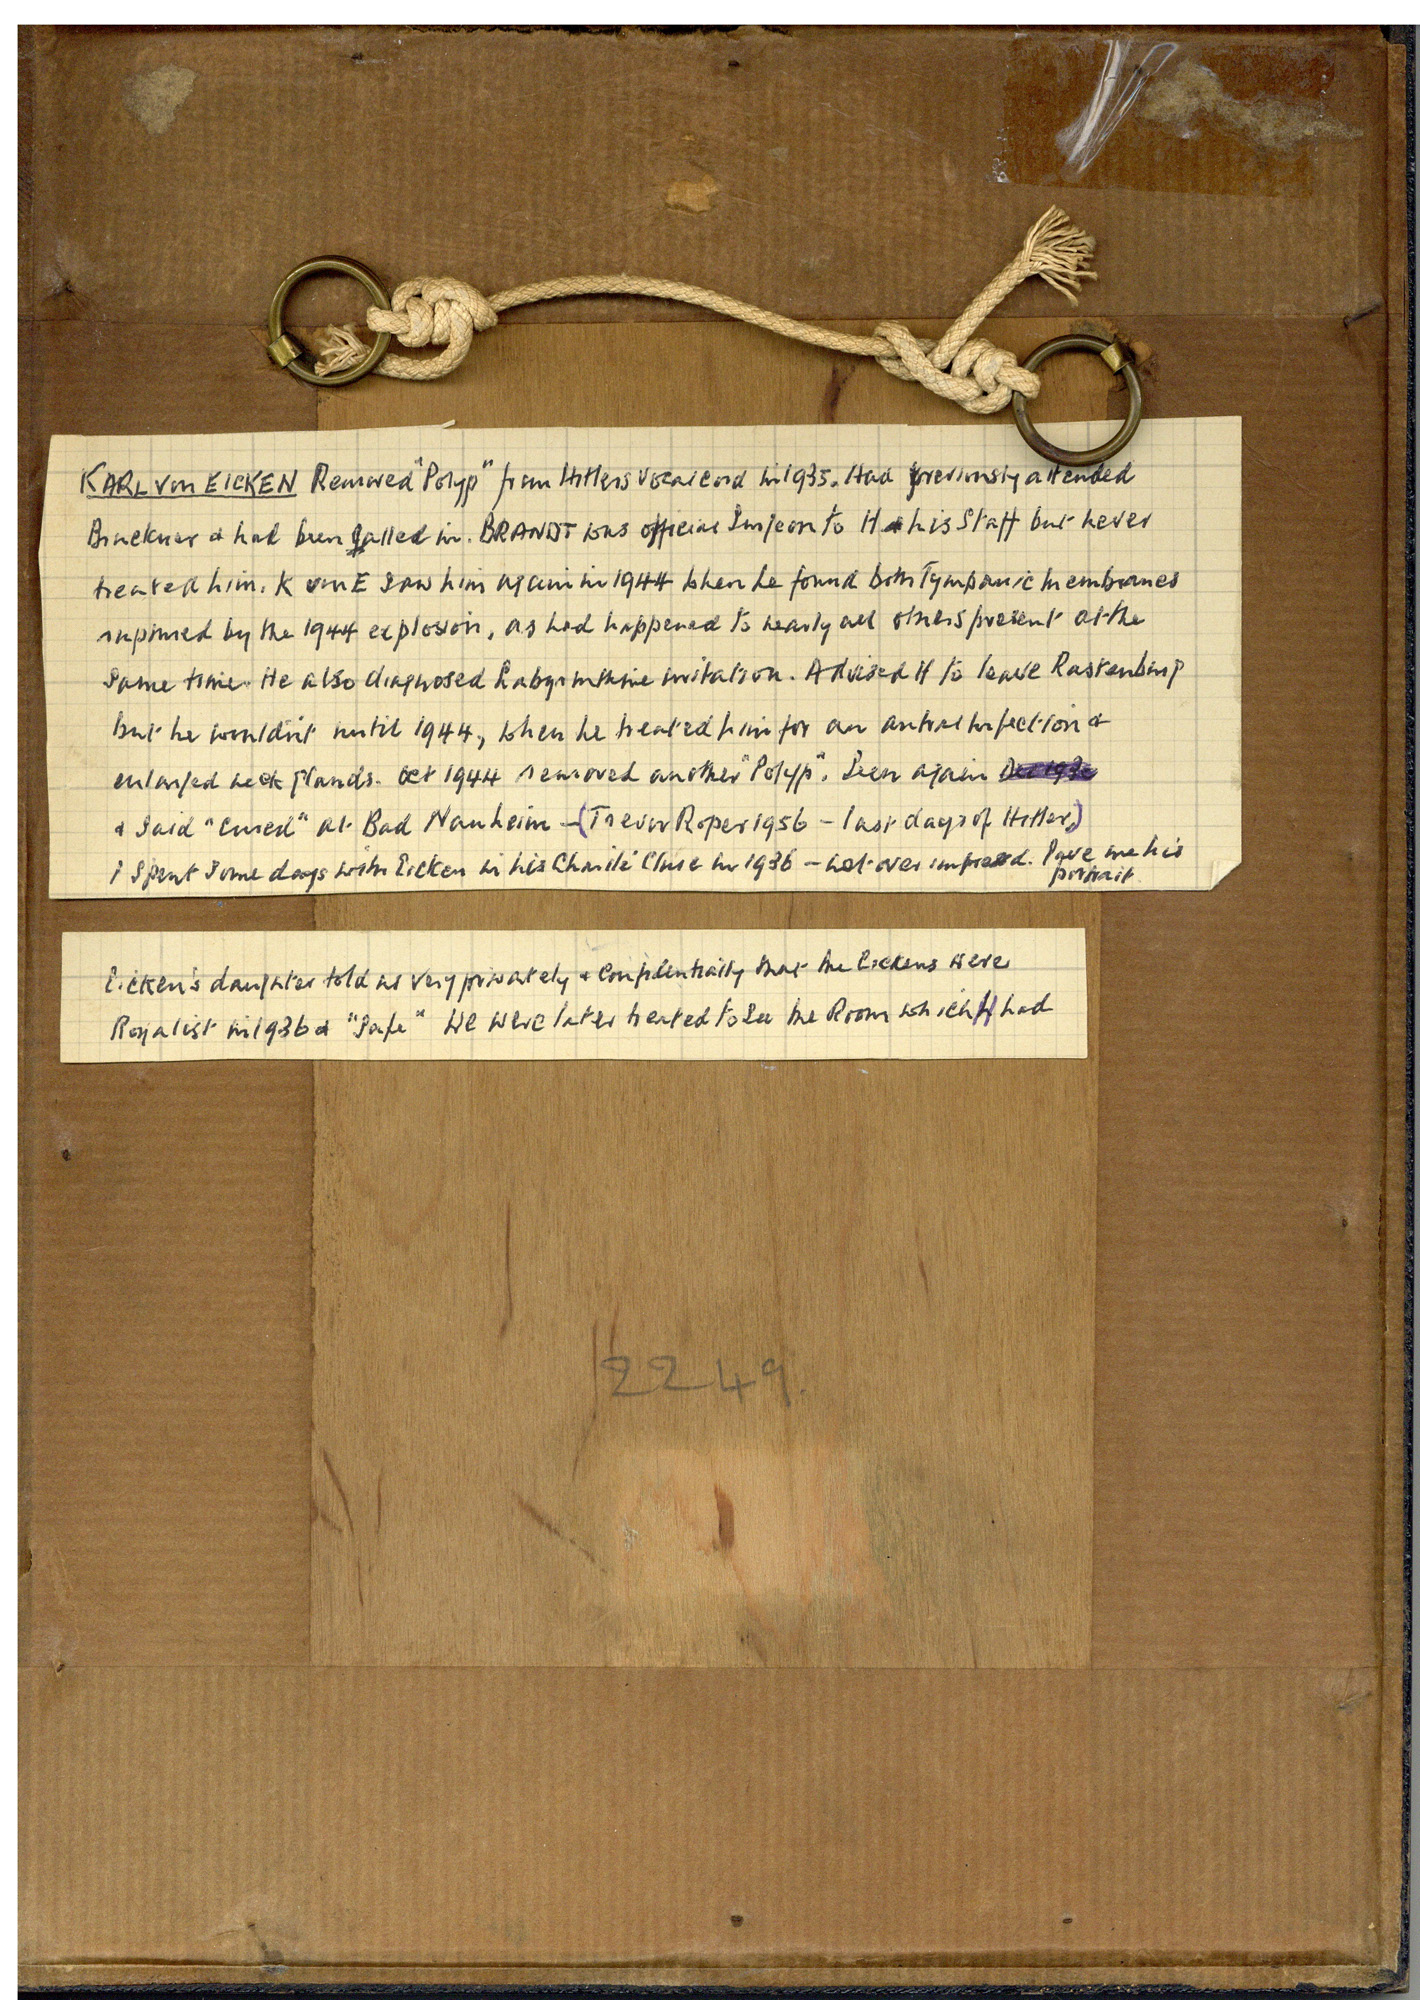 KARL von EICKEN Removed "Polyp" from Hitlers Vocal cord in 1935. Had previously attended
Bruckner & had been called in. BRANDT was official Surgeon to H & his Staff but never
treated him. K von E saw him again in 1944 when he found both Tympanic membranes
ruptured by the 1944 explosion, as had happened to nearly all others present at the
same time. He also diagnosed Labyrinthine irritation. Advised H to leave Rastenburg
but he wouldn't until 1944, when he treated him for an antral infection &
enlarged neck glands. Oct 1944 removed another "Polyp". Seen again
& said "cured" at Bad Nauheim - (Trevor Roper 1956 - last days of Hitler)
I spent some days with Eicken in his Charité Clinic in 1936 - not over impressed. Gave me his
portrait.
Eicken's daughter told us very privately & confidentially that the Eickens were
Royalist in 1936 & "safe" We were later treated to see the Room which H had
2249.